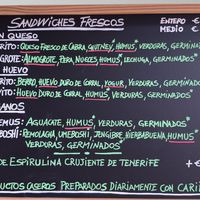 SANDWICHES FRESCOS
ENTERO €
MEDIO €
N QUESO
RITO: QUESO FRESCO DE CABRA, CHUTNEY, HUMUS*, VERDURAS, GERMINADOS
GROTE: ALMOGROTE, PERA, NUECES, HUMUS*, LECHUGA, GERMINADOS*
HUEVO
RITO: BERRO, HUEVO DURO DE CORRAL, YOGUR, VERDURAS, GERMINADOS
VITO: HUEVO DURO DE CORRAL, HUMUS*, VERDURAS, GERMINADOS*
ANOS
EMUS: AGUACATE, HUMUS*, VERDURAS, GERMINADOS*
EBOSHI: REMOLACHA, UMEBOSHI, JENGIBRE, HIERBABUENA, HUMUS*
VERDURAS, GERMINADOS*
DE ESPIRULINA CRUJIENTE DE TENERIFE +€
UCTOS CASEROS PREPARADOS DIARIAMENTE CON CARI